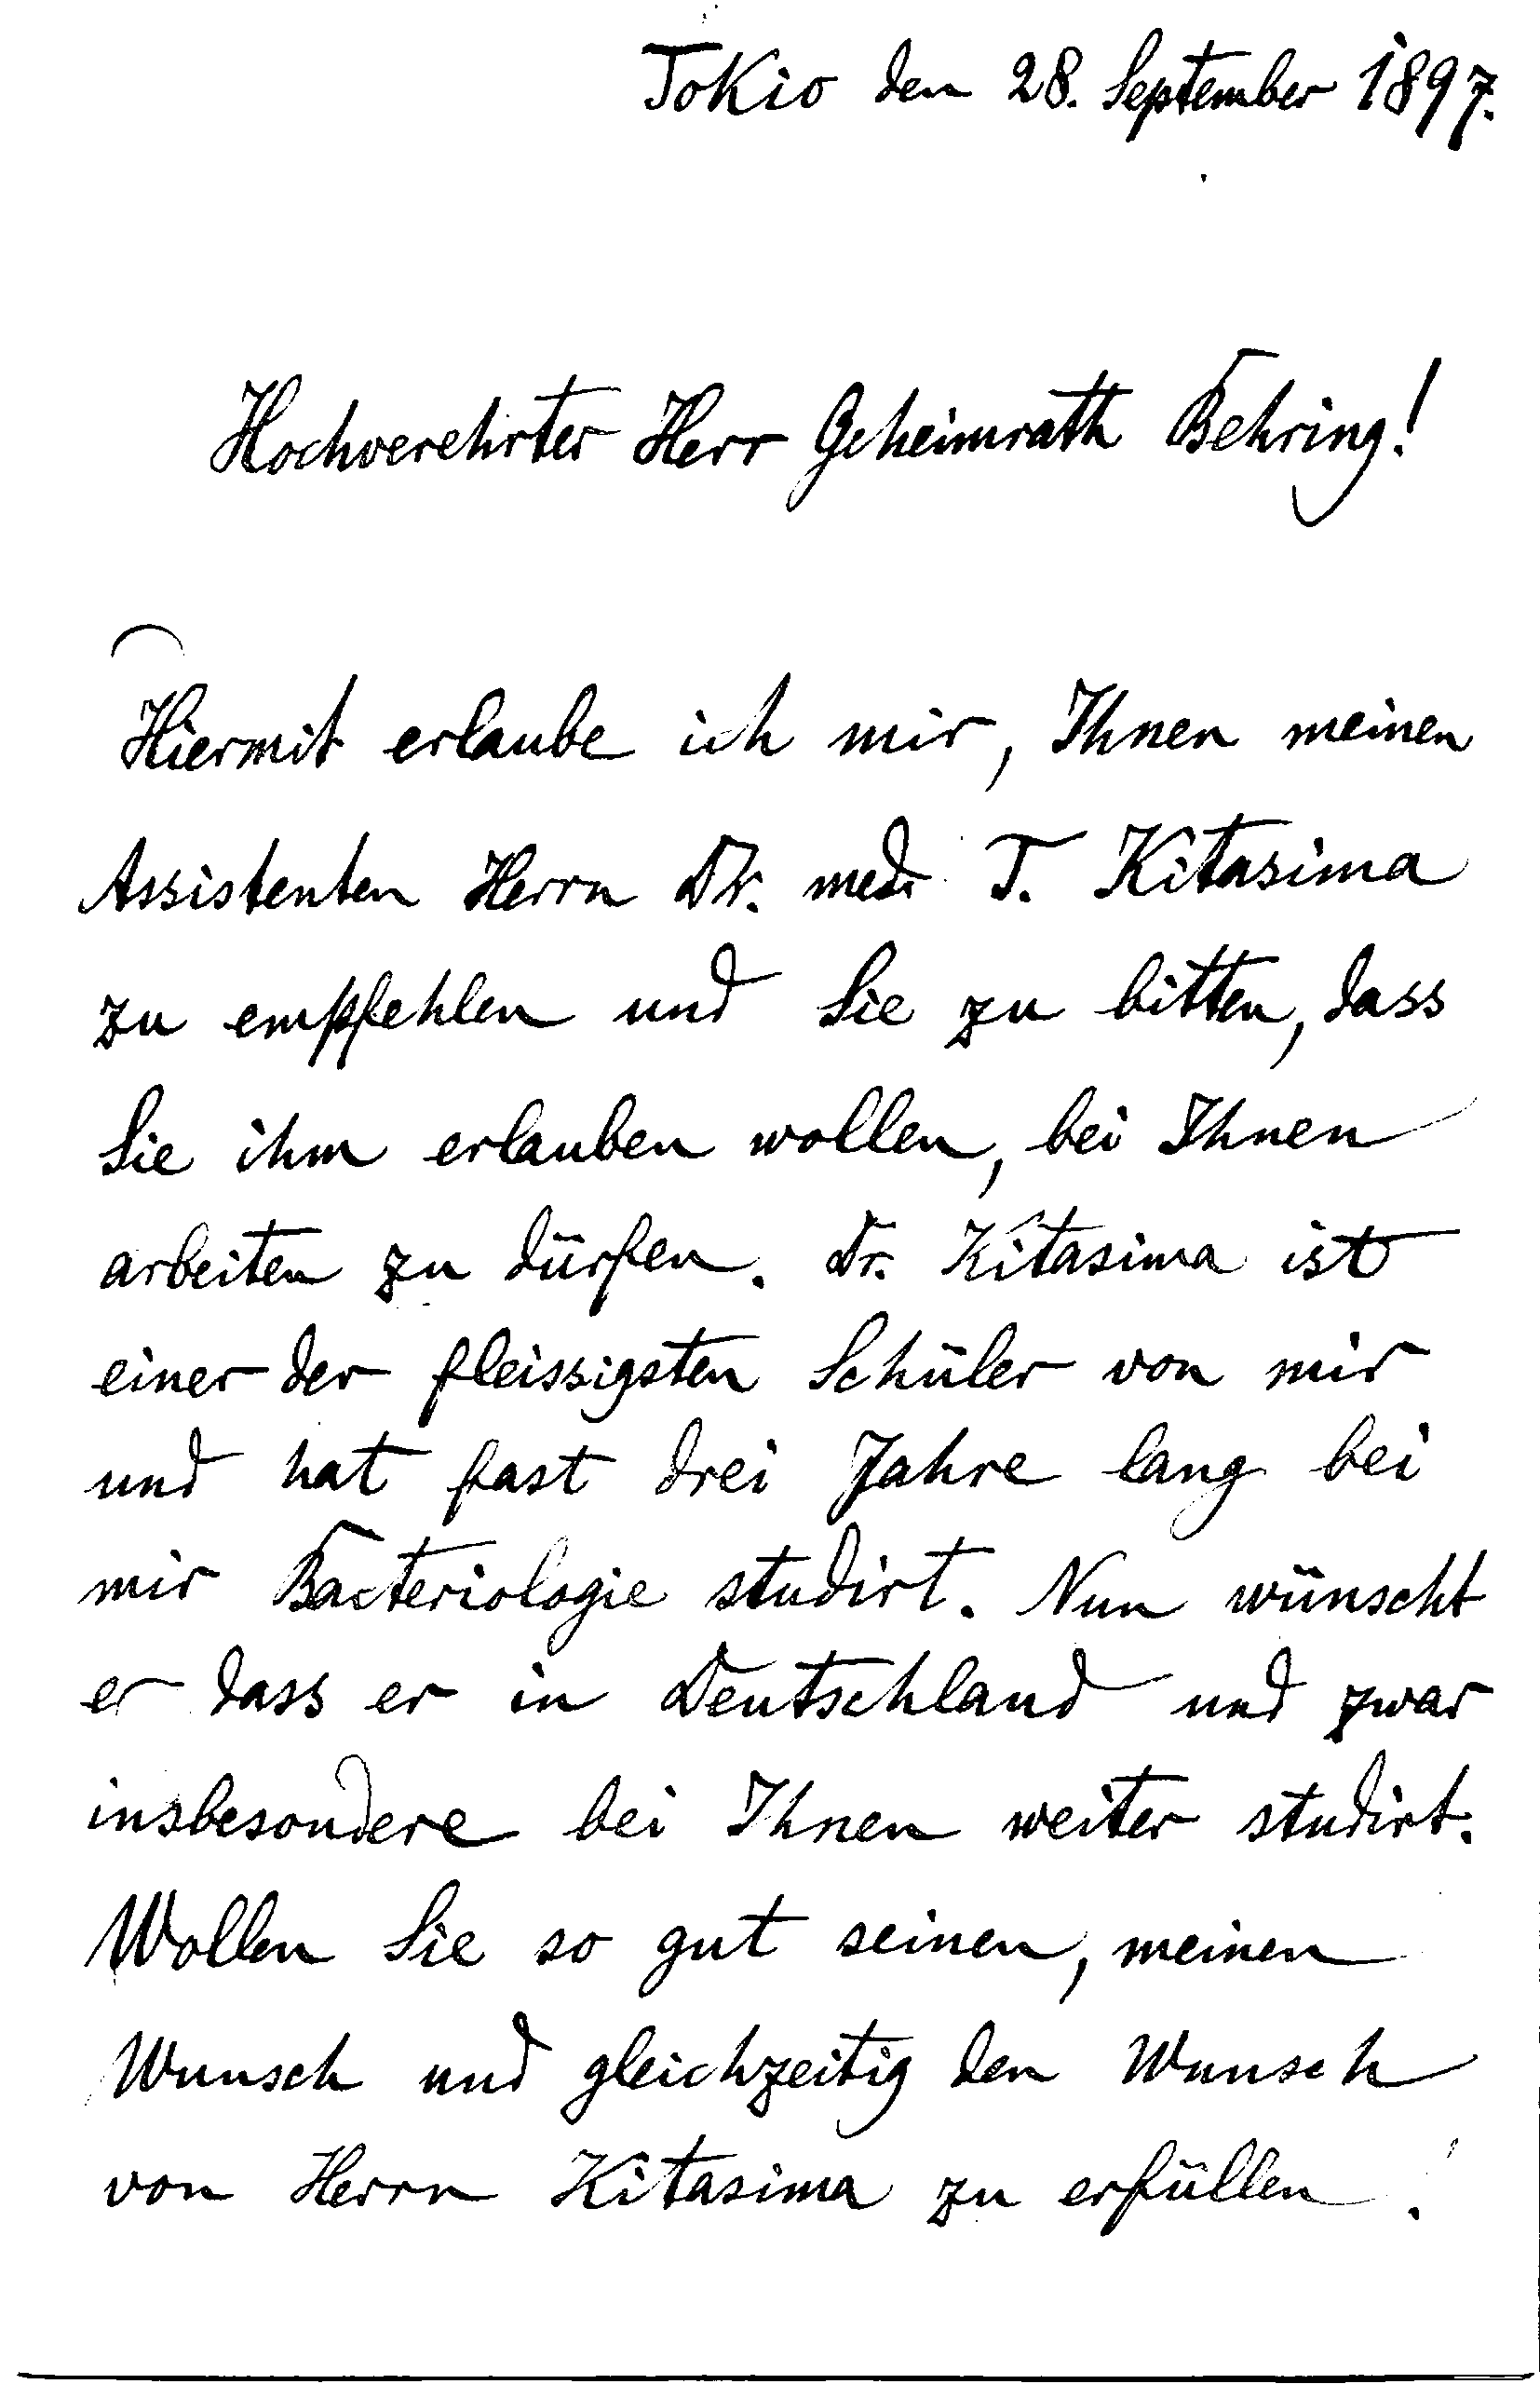 Tokio den 28. September 1897.
Hochverehrter Herr Geheimrath Behring!
Hiermit erlaube ich mir, Ihnen meinen
Assistenten Herrn Dr. med. T. Kitasima
zu empfehlen und Sie zu bitten, dass
Sie ihm erlauben wollen, bei Ihnen
arbeiten zu dürfen. Dr. Kitasima ist
einer der fleissigsten Schüler von mir
und hat fast drei Jahre lang bei
mir Bacteriologie studirt. Nun wünscht
er dass er in Deutschland und zwar
insbesondere bei Ihnen weiter studirt.
Wollen Sie so gut seinen, meinen
Wunsch und gleichzeitig den Wunsch
von Herrn Kitasima zu erfüllen!